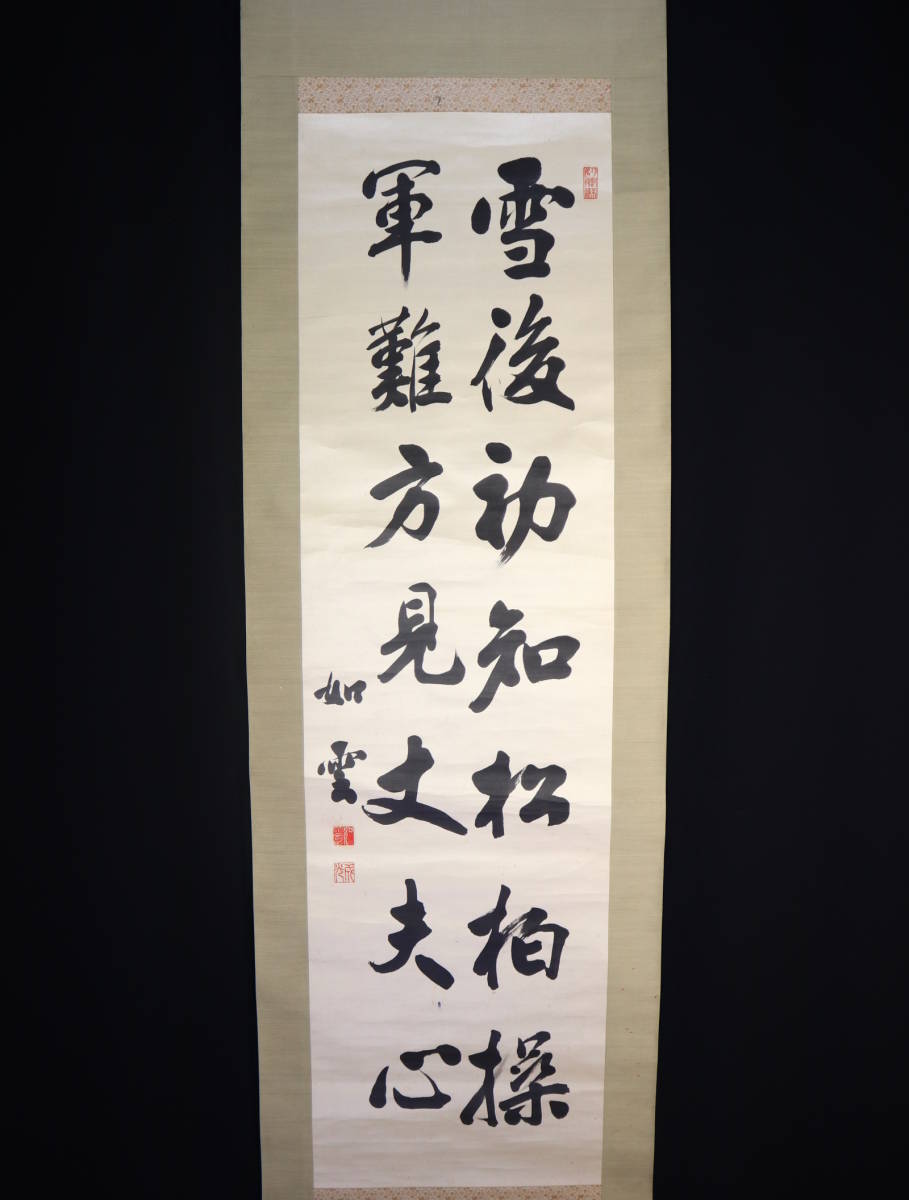 雪後初知松柏操
軍難方見丈夫心
如雲